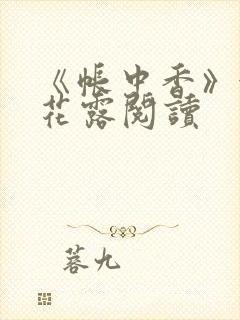 《帳中香》
花露閱讀
菩九